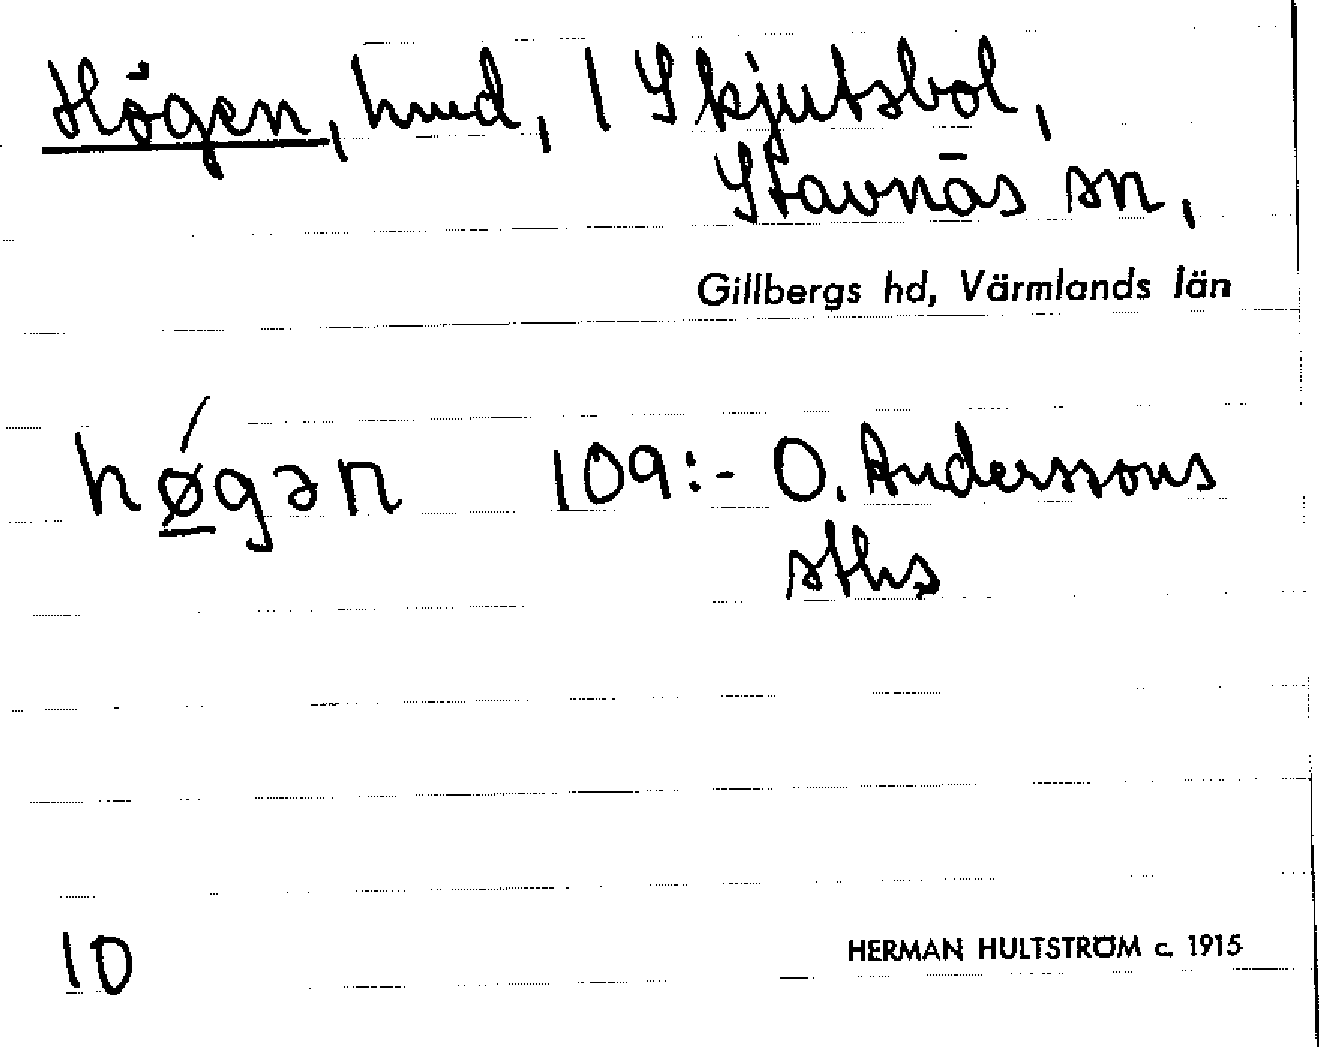 Högen, hmd, 1 Skjutsbol,
Stavnäs sn,
Gillbergs hd, Värmlands län
hǿ̠gən 109:- O. Anderssons
sths
10
HERMAN HULTSTRÖM c. 1915